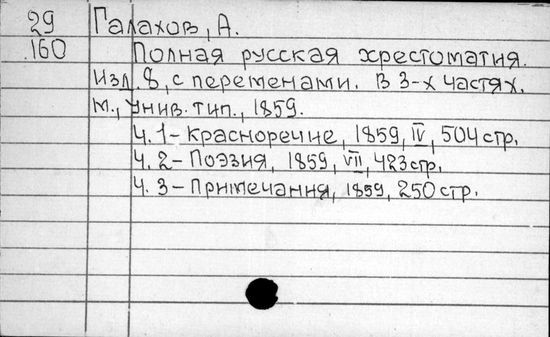 29 Галахов, А.
160 Полная русская хрестоматия.
Изд. 8, с переменами. В 3-х частях.
М., Унив. тип., 1859.
Ч. 1 - Красноречие, 1859, IV, 504 стр.
Ч. 2 - Поэзия, 1859, VII, 423 стр.
Ч. 3 - Примечания, 1859, 250 стр.